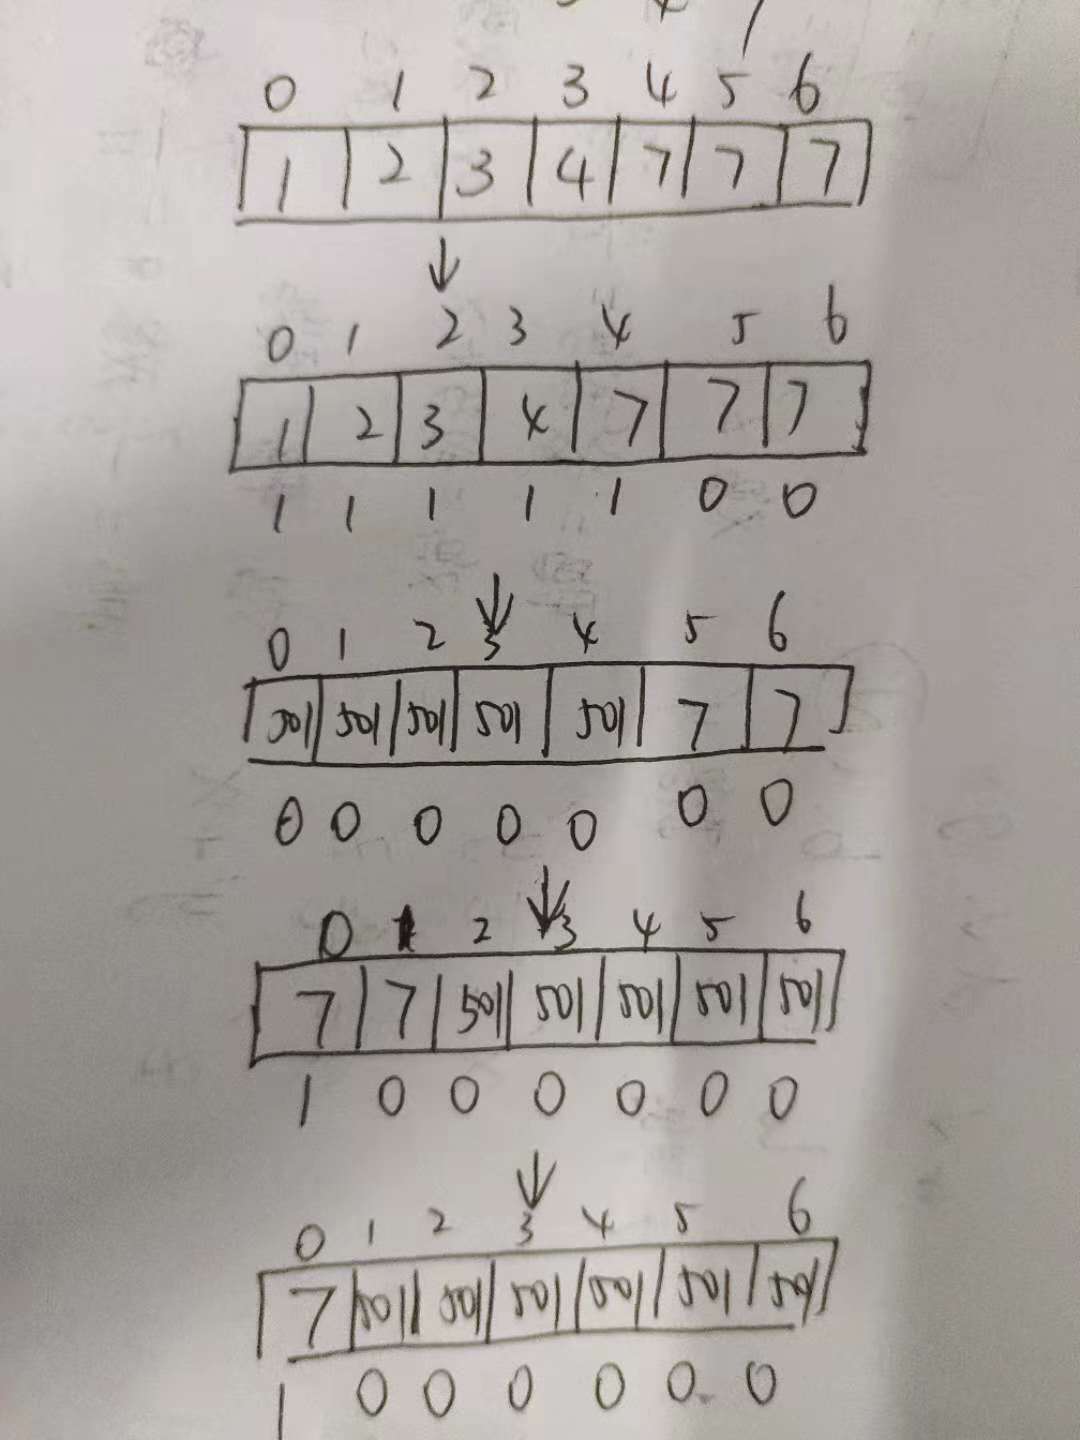 0 1 2 3 4 5 6
1 2 3 4 7 7 7
↓
0 1 2 3 4 5 6
1 2 3 4 7 7 7
1 1 1 1 1 0 0
↓
0 1 2 3 4 5 6
501 501 501 501 501 7 7
0 0 0 0 0 0 0
↓
0 1 2 3 4 5 6
7 7 501 501 501 501 501
1 0 0 0 0 0 0
↓
0 1 2 3 4 5 6
7 501 501 501 501 501 501
1 0 0 0 0 0 0